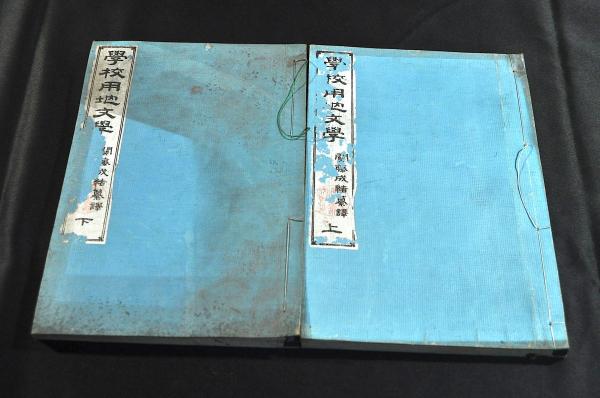 學校用地文學
關藤成緒纂譯
上
學校用地文學
關藤成緒纂譯
下